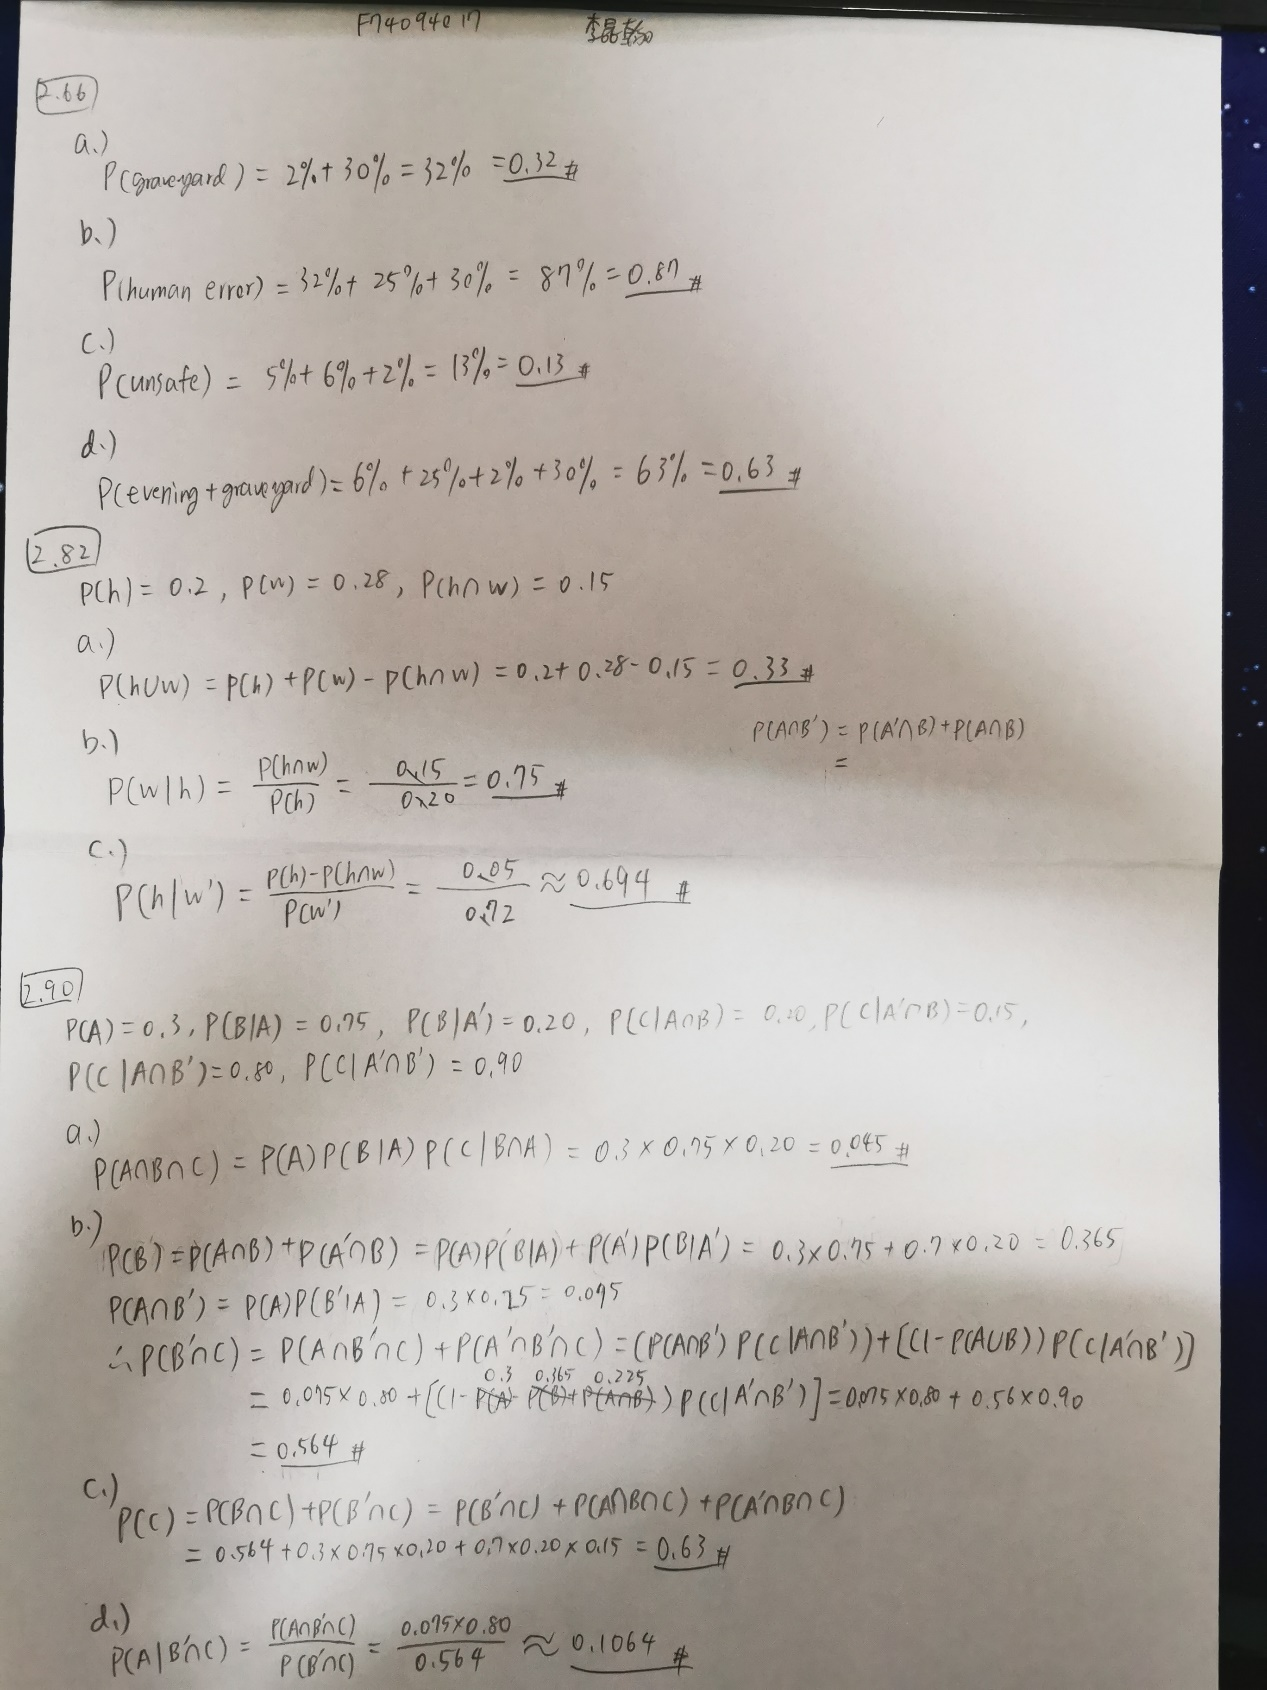 F74094017 李晶乾
2.66
a.)
P(graveyard) = 2%+30% = 32% = 0.32 #
b.)
P(human error) = 32%+ 25%+ 30% = 87% = 0.87 #
c.)
P(unsafe) = 5%+ 6%+2% = 13% = 0.13 #
d.)
P(evening+graveyard) = 6% +25%+2% +30% = 63% = 0.63 #
2.82
P(h) = 0.2, P(w) = 0.28, P(h∩w) = 0.15
a.)
P(h∪w) = P(h) +P(w) - P(h∩w) = 0.2+ 0.28- 0.15 = 0.33 #
P(A∩B') = P(A'∩B)+P(A∩B)
=
b.)
P(w|h) = P(h∩w)/P(h) = 0.15/0.20 = 0.75 #
c.)
P(h|w') = P(h)-P(h∩w)/P(w') = 0.05/0.72 ≈ 0.694 #
2.90
P(A)=0.3, P(B|A) = 0.75, P(B|A')=0.20, P(C|A∩B) = 0.20, P(C|A'∩B)=0.15,
P(C|A∩B')=0.80, P(C|A'∩B') = 0.90
a.)
P(A∩B∩C) = P(A)P(B|A)P(C|B∩A) = 0.3×0.75×0.20 = 0.045 #
b.)
P(B) = P(A∩B)+P(A'∩B) = P(A)P(B|A)+P(A')P(B|A') = 0.3×0.75+0.7×0.20 = 0.365
P(A∩B') = P(A)P(B'|A) = 0.3×0.25 = 0.075
∴P(B'∩C) = P(A∩B'∩C)+P(A'∩B'∩C) = (P(A∩B')P(C|A∩B'))+[(1-P(A∪B))P(C|A'∩B')]
0.3 0.365 0.225
= 0.075×0.80+[(1-P(A)-P(B)+P(A∩B))P(C|A'∩B')] = 0.075×0.80+0.56×0.90
= 0.564 #
c.)
P(C) = P(B∩C)+P(B'∩C) = P(B'∩C)+P(A∩B∩C)+P(A'∩B∩C)
= 0.564+0.3×0.75×0.20+0.7×0.20×0.15 = 0.63 #
d.)
P(A|B'∩C) = P(A∩B'∩C)/P(B'∩C) = 0.075×0.80/0.564 ≈ 0.1064 #